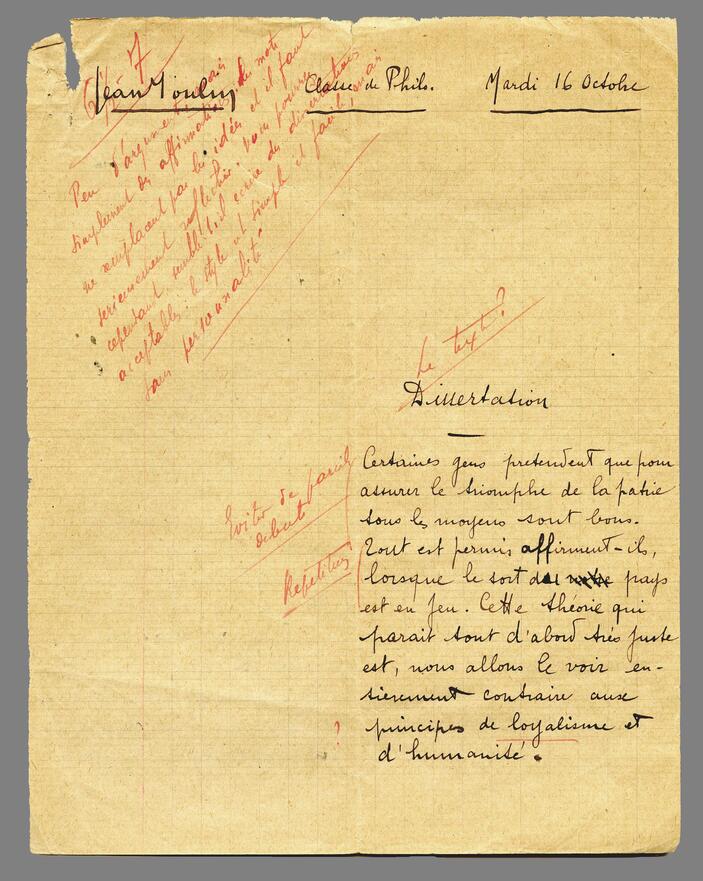 Jean Moulin Classe de Phil. Mardi 16 Octobre
7
Peu d'arguments mais
simplement des affirmations, des mots
ne remplacent pas les idées et il faut
serieusement réflechir. Vous pourrez
cependant, semble-t-il écrire des dissertations
acceptables: le style est simple et facile, mais
sans personnalité
Le texte?
Dissertation
Eviter de pareils
debuts
Certaines gens pretendent que pour
assurer le triomphe de la patrie
tous les moyens sont bons.
Répétition
Tout est permis affirment-ils,
lorsque le sort du pays
est en jeu. Cette théorie qui
parait tout d'abord très juste
est, nous allons le voir en-
tièrement contraire aux
? principes de loyalisme et
d'humanité.